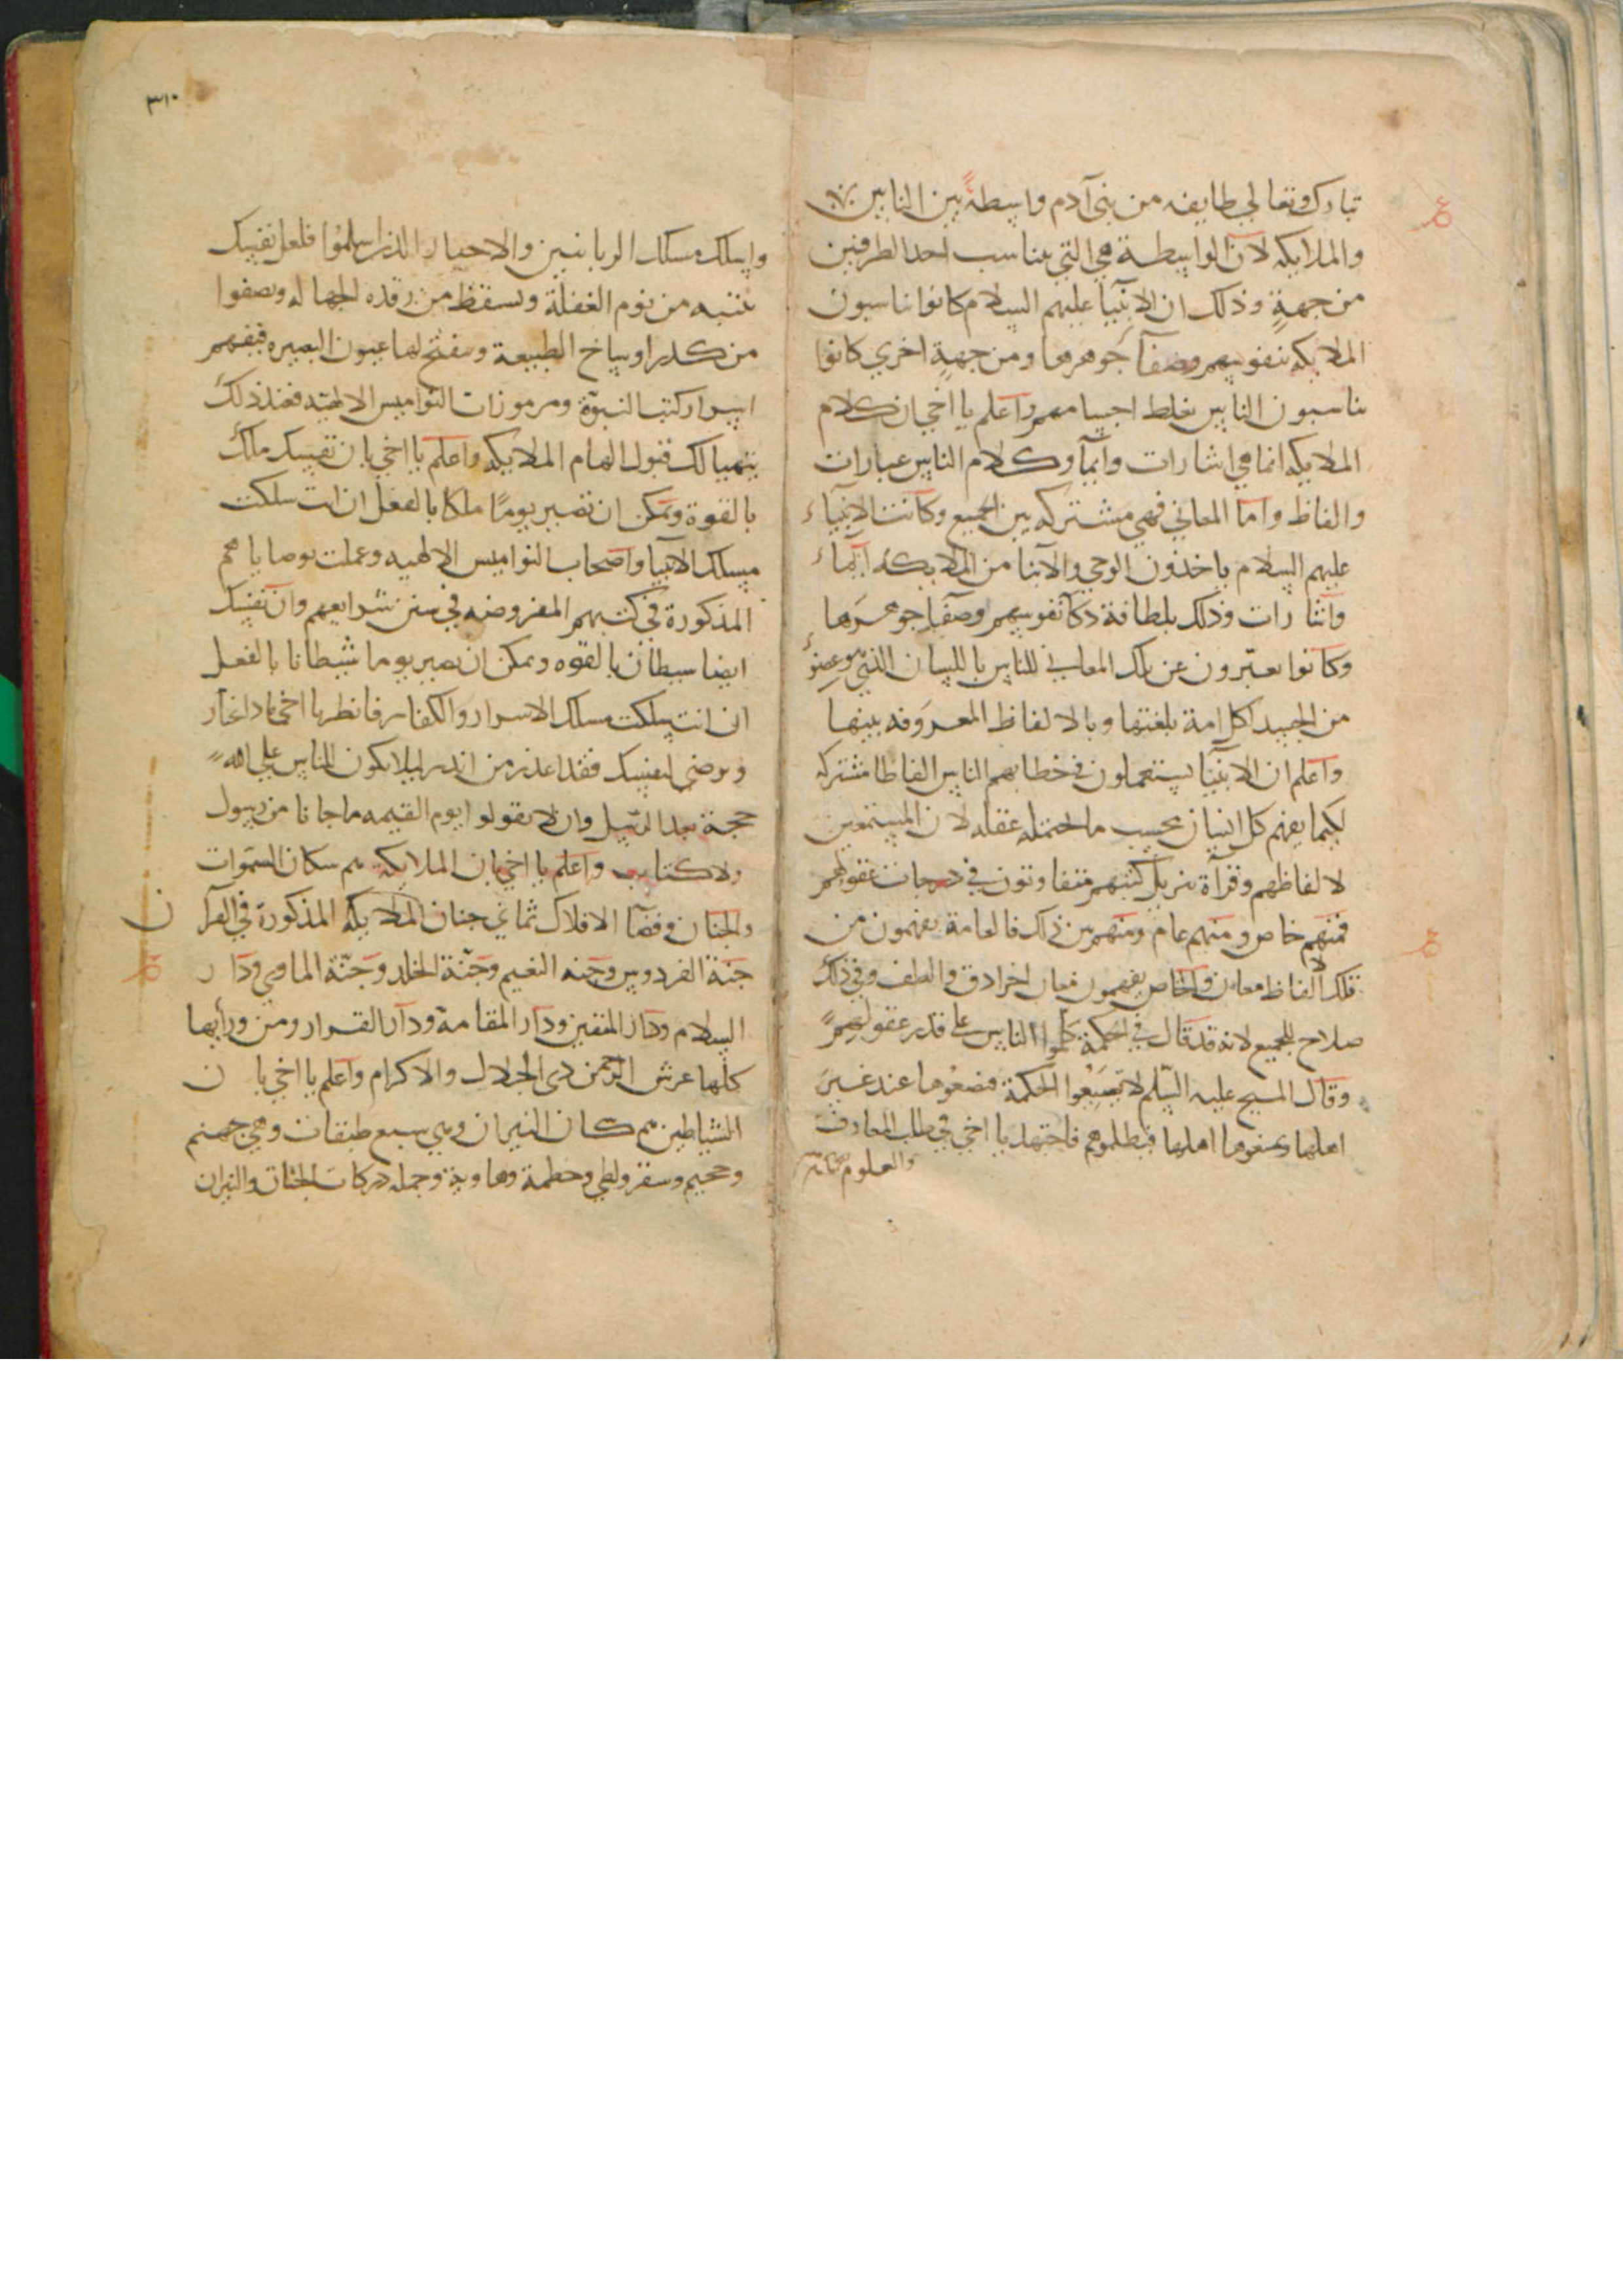 تبارك وتعالى طايفه من بني آدم واسطة بين الناس
والملايكه لان الواسطة هي التي تناسب احد الطرفين
من جهةٍ وذلك ان الانبيا عليهم السلام كانوا يناسبون
الملايكه بنفوسهم وصفا جوهرها ومن جهةٍ اخري كانوا
يناسبون الناس بغلط اجسامهم واعلم يا اخي ان كلام
الملايكه انما هي اشارات وايماً وكلام الناس عبارات
والفاظ واما المعاني فهي مشتركه بين الجميع وكانت الانبياء
عليهم السلام ياخذون الوحي والانبا من الملايكه ايماء
واشارات وذلك بلطافة ذكا نفوسهم وصفا جوهرها
وكانوا يعبّرون عن تلك المعاني للناس باللسان الذي هو عضوٌ
من الجسد لكل امة بلغتها وبالالفاظ المعروفه بينها
واعلم ان الانبيا يستعملون في خطابهم الناس الفاظا مشتركه
لكيما يفهم كل انسان بحسب ما احتمله عقله لان المستمعين
لالفاظهم وقرآة تنزيل كتبهم متفاوتون في درجات عقولهم
فمنهم خاص ومنهم عام ومنهم بين ذلك فالعامة يفهمون من
تلك الالفاظ معان والخاص يفهمون معان اخر ادق والطف وفي ذلك
صلاح للجميع لانه قد قال في الحكمة كلموا الناس علي قدر عقولهم
وقال المسيح عليه السلم لا تضيعوا الحكمة فتضعوها عند غير
اهلها ولا تمنعوها اهلها فتظلموهم فاجتهد يا اخي في طلب المعارف
والعلوم
٣١٠
واسلك مسلك الربانيين والاحبار الذين اسلموا فلعل نفسك
تنتبه من نوم الغفلة وتستيقظ من رقده الجهاله وتصفوا
من كدر اوساخ الطبيعة وتنفتح لها عيون البصيره فتفهم
اسرار كتب النبوّة ومرموزات النواميس الالهيّه فعند ذلك
يتهيا لك قبول الهام الملايكه واعلم يا اخي بان نفسك ملك
بالقوة ويمكن ان تصير يومًا ملكا بالفعل ان انت سلكت
مسلك الانبيا واصحاب النواميس الالهيه وعملت بوصاياهم
المذكورة في كتبهم المفروضه في سنن شرايعهم وان نفسك
ايضا شيطان بالقوه ويمكن ان تصير يوما شيطانا بالفعل
ان انت سلكت مسلك الاشرار والكفار فانظر يا اخي ماذا تختار
وترضي لنفسك فقد اعذر من انذر ليلا يكون للناس علي الله
حجة بعد الرسل وان لا يقولوا يوم القيمه ما جانا من رسول
ولا كتاب واعلم يا اخي بان الملايكه هم سكان السموات
والجنان وفضا الافلاك ثماني جنان الملايكه المذكورة في القرآن
جنة الفردوس وجنه النعيم وجنّة الخلد وجنّة الماوي ودار
السلام ودار المتقين ودار المقامة ودار القرار ومن ورايها
كلها عرش الرحمن ذي الجلال والاكرام واعلم يا اخي بان
الشياطين هم سكان النيران وهي سبع طبقات وهي جهنم
وجحيم وسقر ولظي وحطمة وهاوية وجمله دركات الجنان والنيران